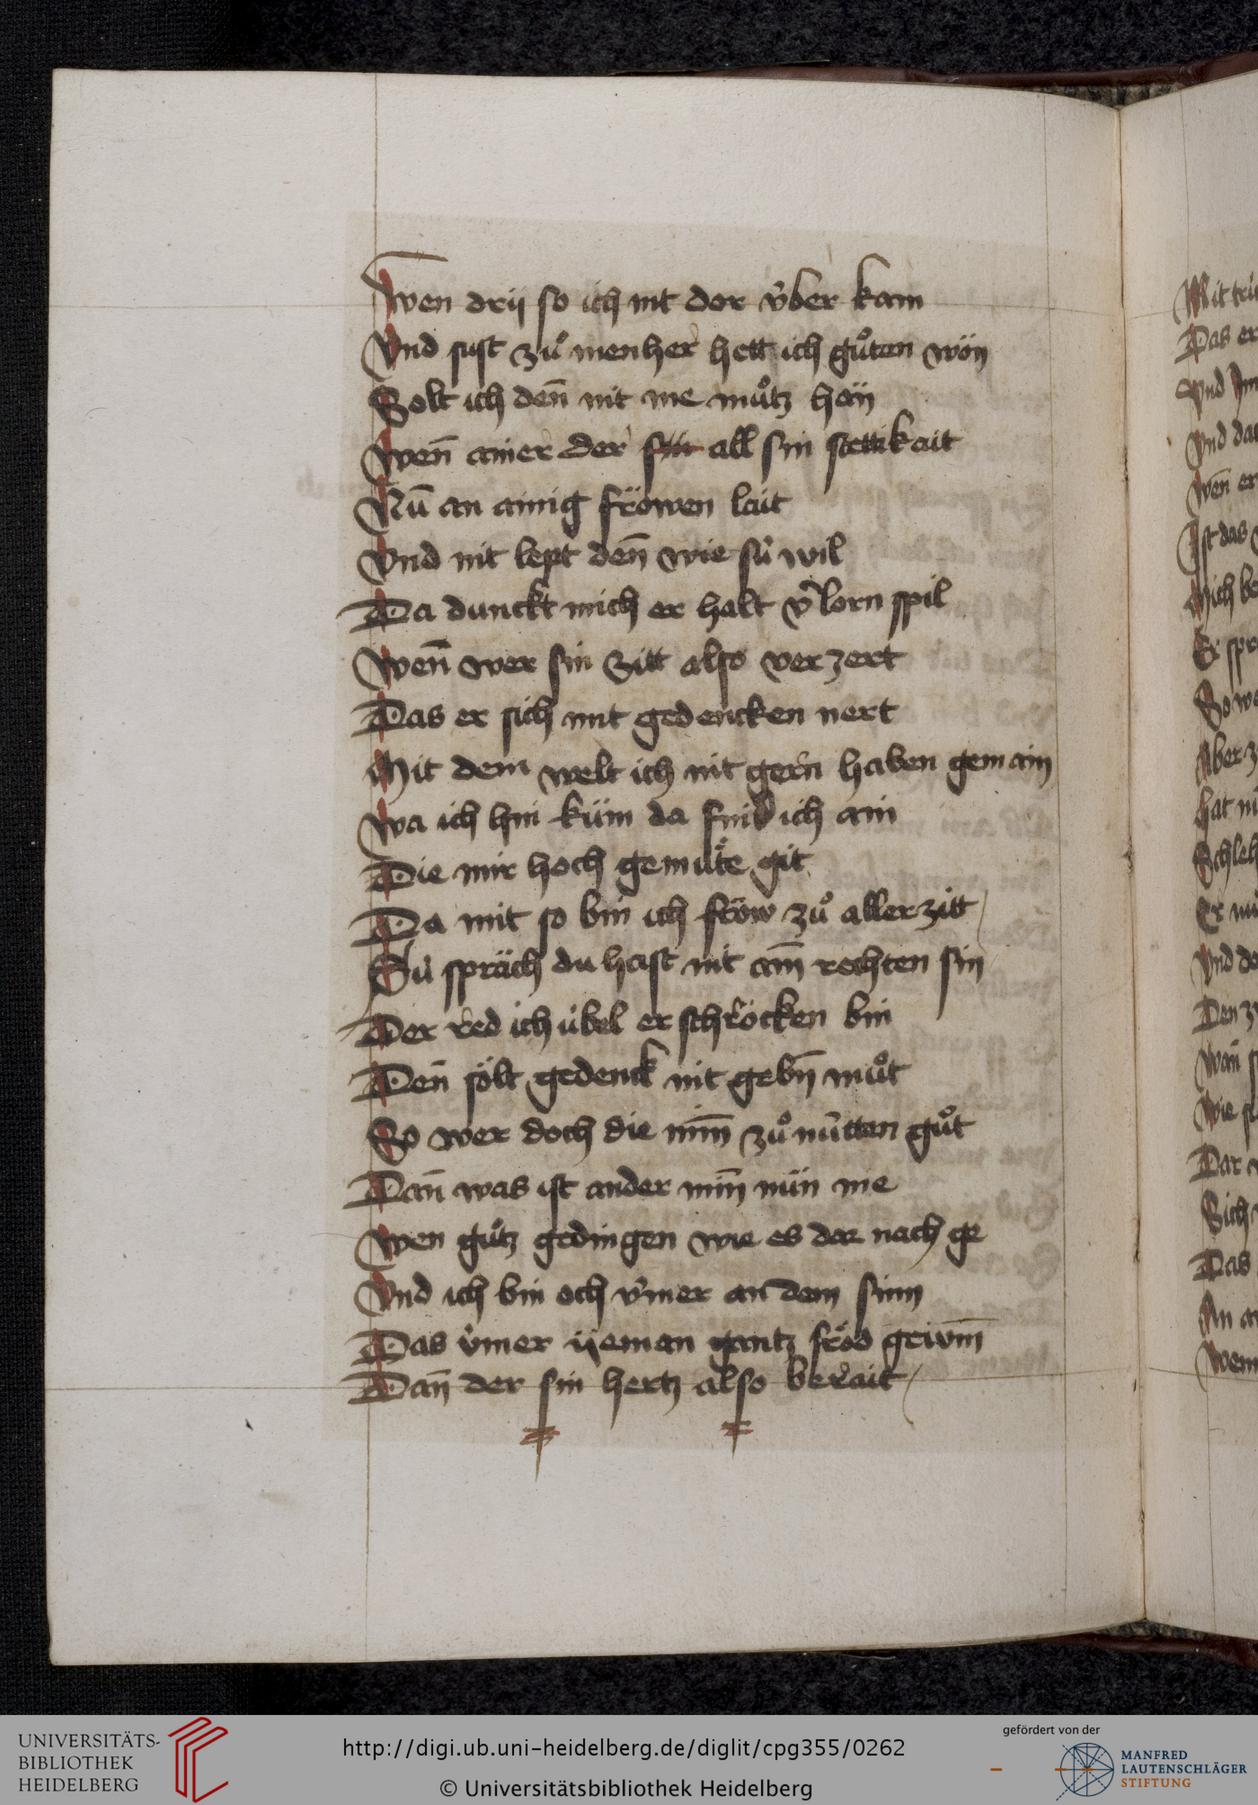 Wen drÿ so ich nit der v̈ber kam
Vnd sust zuͦ menher hett ich guͦten wön
Solt ich den̄ nit me muͦtz hön
Wen̄ ainer der sin all sin stettikait
Nū an ainig fröwen lait
Vnd nit lept den̄ wie sü wil
Da dunckt mich er halt v'lorn spil
Wen̄ wer sin zitt also ver zert
Das er sich mit gedencken nert
Mit dem welt ich nit gern haben gemain
Wa ich hin küm da find ich ain
Die mir hoch gemuͤte git
Da mit so bin ich fröw zuͦ aller zitt
Sü spräch du hast nit ain̄ rechten sin
Der red ich übel er schröcken bin
Den̄ sölt gedenck nit gebn̄ muͦt
So wer doch die min̄ zuͦ nütten guͦt
Dan̄ was ist ander min̄ nün me
Wen guͦtz gedingen wie es dar nach ge
Vnd ich bin och v̈mer an dem sinn
Das v̈mer yeman gantz fröd gewin̄
Dan̄ der sin hertz also berait
Mit
Das er
Vnd
Vnd
Wen er
Ist das
Mich
Er
So
Aber
hat
Er
Vnd
Den
Wan̄
Wie
Dar
Sich
Das
An
UNIVERSITÄTS-
BIBLIOTHEK
HEIDELBERG
http://digi.ub.uni-heidelberg.de/diglit/cpg355/0262
© Universitätsbibliothek Heidelberg
gefördert von der
MANFRED
LAUTENSCHLÄGER
STIFTUNG